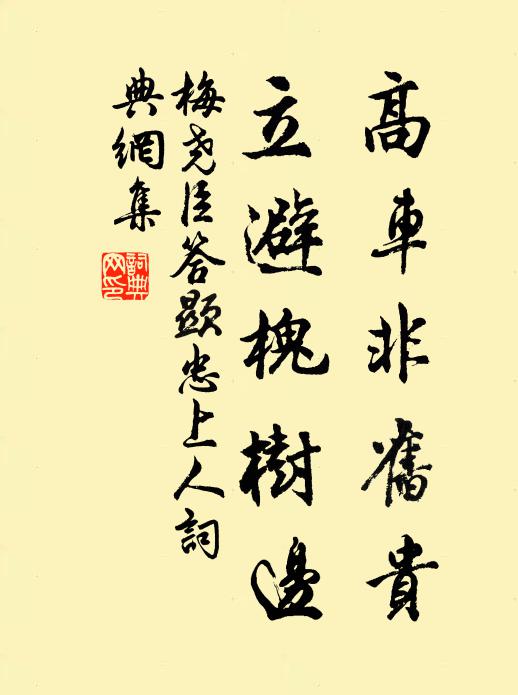 高車非舊貴
立避槐樹邊
梅堯臣答顯忠上人詞
典網集
詞典
網印